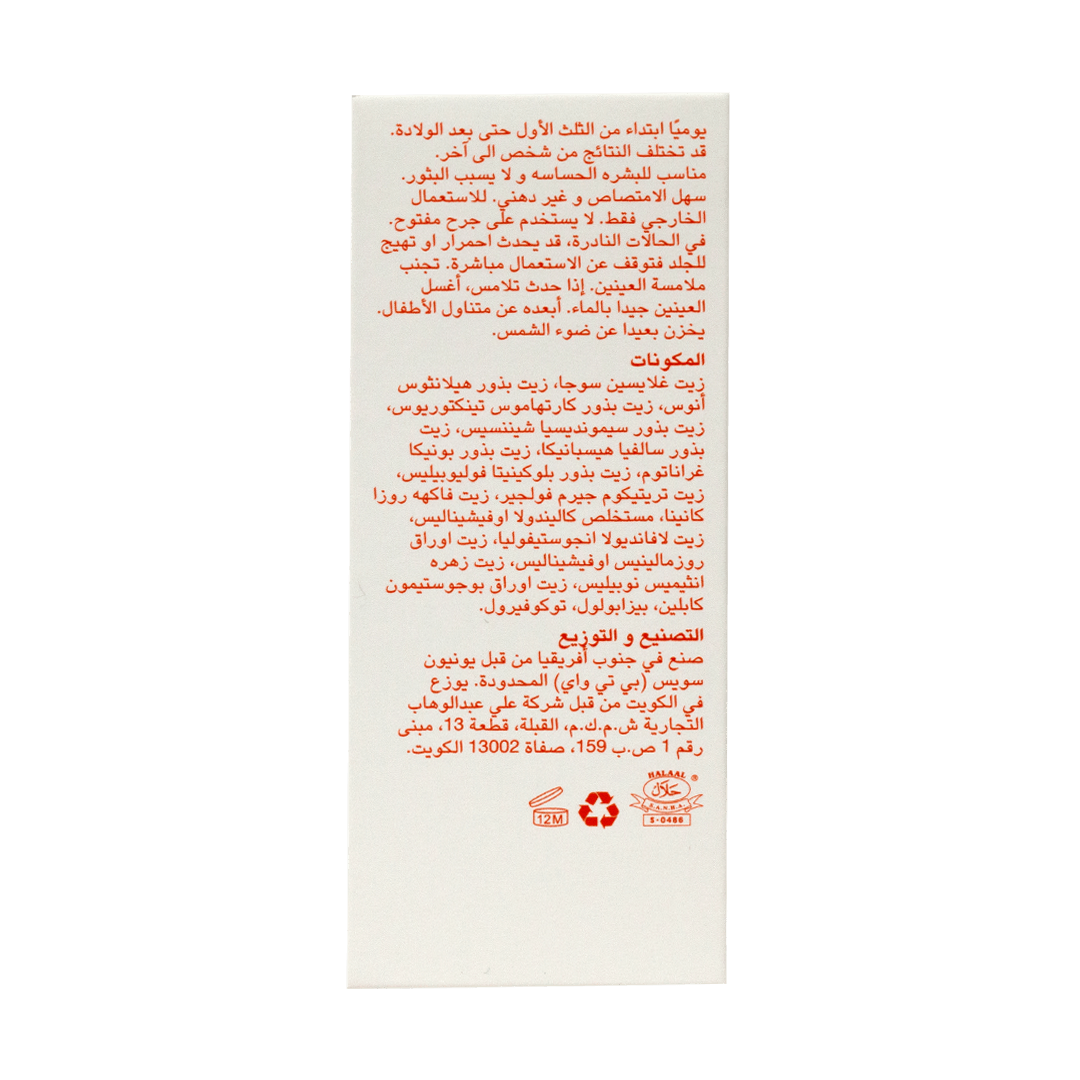 يوميًا ابتداء من الثلث الأول حتى بعد الولادة.
قد تختلف النتائج من شخص الى آخر.
مناسب للبشره الحساسه و لا يسبب البثور.
سهل الامتصاص و غير دهني. للاستعمال
الخارجي فقط. لا يستخدم على جرح مفتوح.
في الحالات النادرة، قد يحدث احمرار او تهيج
للجلد فتوقف عن الاستعمال مباشرة. تجنب
ملامسة العينين. إذا حدث تلامس، أغسل
العينين جيدا بالماء. أبعده عن متناول الأطفال.
يخزن بعيدا عن ضوء الشمس.
المكونات
زيت غلايسين سوجا، زيت بذور هيلانثوس
أنوس، زيت بذور كارتهاموس تينكتوريوس،
زيت بذور سيمونديسيا شيننسيس، زيت
بذور سالفيا هيسبانيكا، زيت بذور بونيكا
غراناتوم، زيت بذور بلوكينيتا فوليوبيليس،
زيت تريتيكوم جيرم فولجير، زيت فاكهه روزا
كانينا، مستخلص كاليندولا اوفيشيناليس،
زيت لافانديولا انجوستيفوليا، زيت اوراق
روزمالينيس اوفيشيناليس، زيت زهره
انثيميس نوبيليس، زيت اوراق بوجوستيمون
كابلين، بيزابولول، توكوفيرول.
التصنيع و التوزيع
صنع في جنوب أفريقيا من قبل يونيون
سويس (بي تي واي) المحدودة. يوزع
في الكويت من قبل شركة علي عبدالوهاب
التجارية ش.م.ك.م، القبلة، قطعة 13، مبنى
رقم 1 ص.ب 159، صفاة 13002 الكويت.
HALAAL ®
حلال
S.A.N.H.A.
S-0486
12M